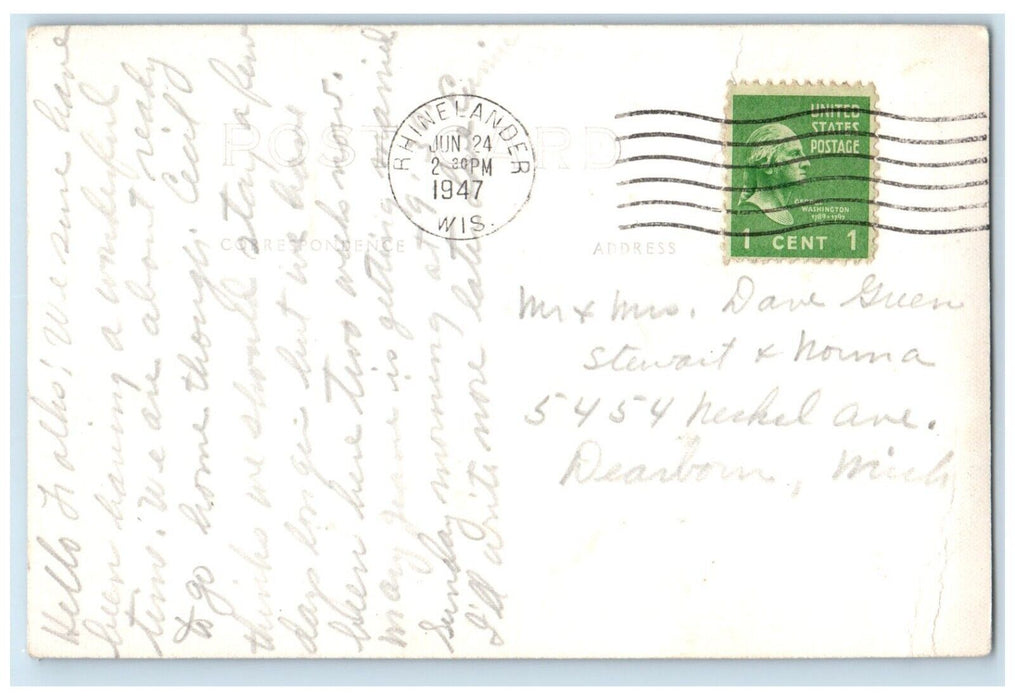 Hello Folks! We sure have
been having a wonderful
time. We are about ready
to go home though. Cecil
thinks we should stay a few
days longer but we have
been here two weeks now.
Mary Jeane is getting married
Sunday morning at 9
I'll write more later
POST CARD
CORRESPONDENCE
ADDRESS
RHINELANDER
JUN 24
2 30 PM
1947
WIS.
UNITED
STATES
POSTAGE
GEORGE
WASHINGTON
1789-1797
1 CENT 1
Mr & Mrs. Dave Green
Stewart & Norma
5454 Neckel Ave.
Dearborn, Mich